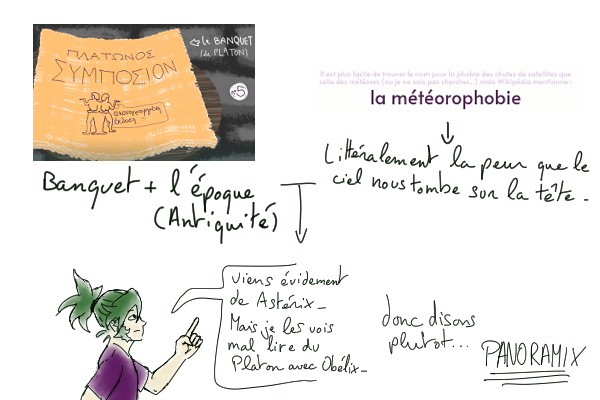 ΠΛΑΤΩΝΟΣ
ΣΥΜΠΟΣΙΟΝ
Le BANQUET
(de PLATON)
n°5
Il est plus facile de trouver le nom pour la phobie des chutes de satellites que
celle des météores (ou je ne sais pas chercher...) mais Wikipédia mentionne :
la météorophobie
Littéralement la peur que le
ciel nous tombe sur la tête.
Banquet + l'époque
(Antiquité)
Viens évidement
de Astérix.
Mais je les vois
mal lire du
Platon avec Obélix.
donc disons
plutôt...
PANORAMIX